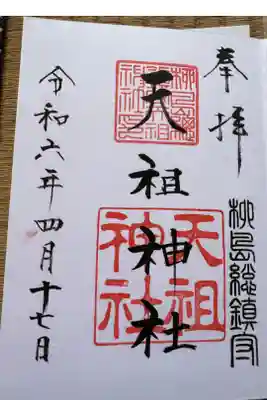 奉拝
柳島総鎮守
天祖神社
天祖
神社
令和六年四月十七日